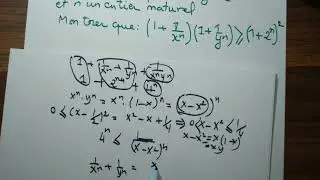 et n un entier naturel
Montrer que: (1 + 1/xⁿ)(1 + 1/yⁿ) ≥ (1 + 2ⁿ)²
1 + 1/xⁿ + 1/yⁿ + 1/xⁿyⁿ
1 + 4ⁿ
xⁿ.yⁿ = xⁿ.(1-x)ⁿ = (x-x²)ⁿ
0 ≤ (x-1/2)² = x²-x+1/4 ⇒ 0 ≤ x-x² ≤ 1/4
x-x² = x(1-x)
= xy
4ⁿ ≤ 1/(x-x²)ⁿ
1/xⁿ + 1/yⁿ =